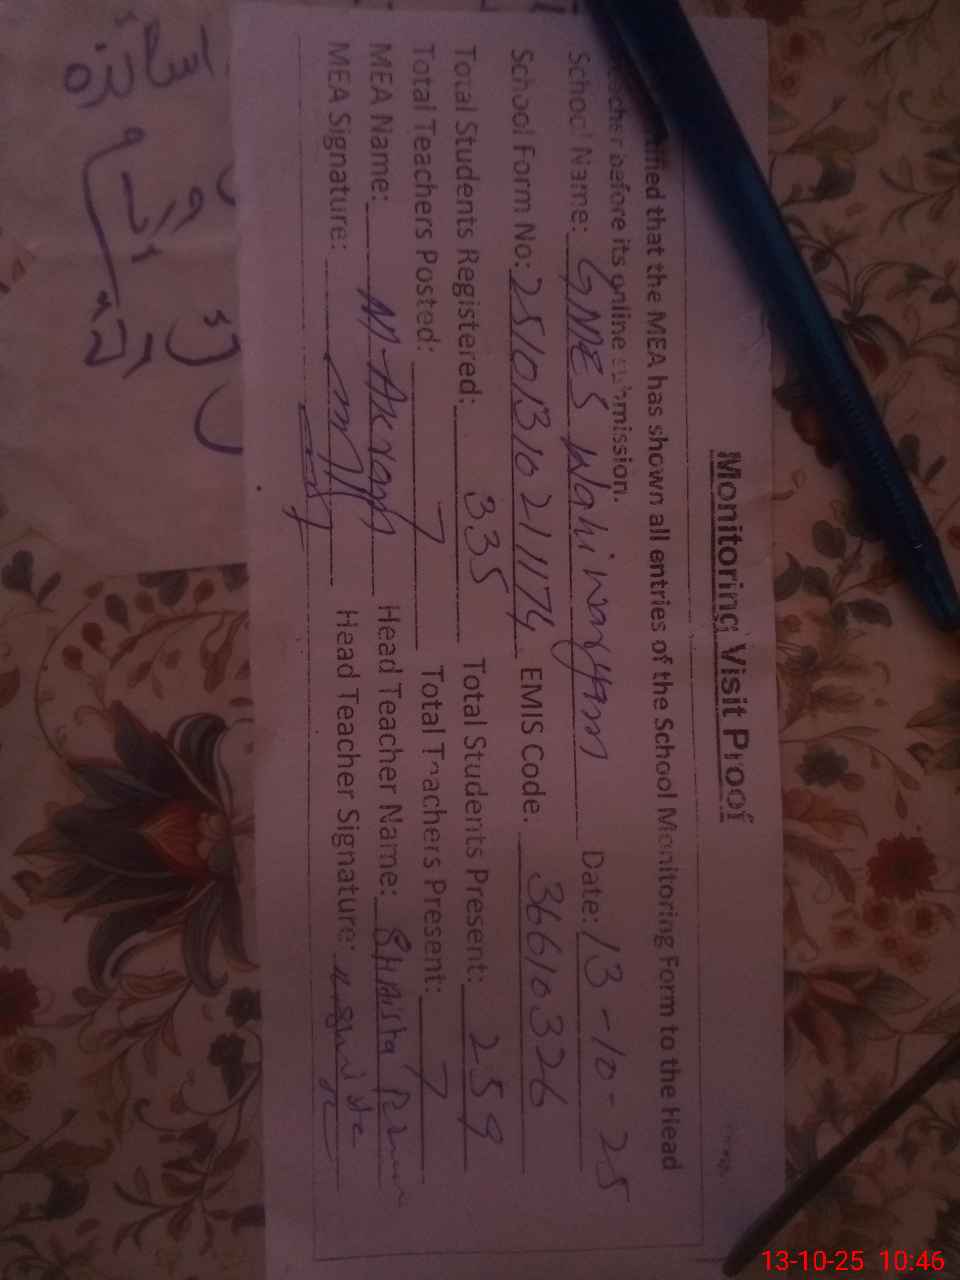 Monitoring Visit Proof
that the MEA has shown all entries of the School Monitoring Form to the Head
before its online submission.
School Name: GMES Wahi waryam Date: 13-10-25
School Form No: 25101310211174 EMIS Code. 36610326
Total Students Registered: 335 Total Students Present: 259
Total Teachers Posted: 7 Total Teachers Present: 7
MEA Name: M-Akram Head Teacher Name:
MEA Signature: Head Teacher Signature:
13-10-25 10:46